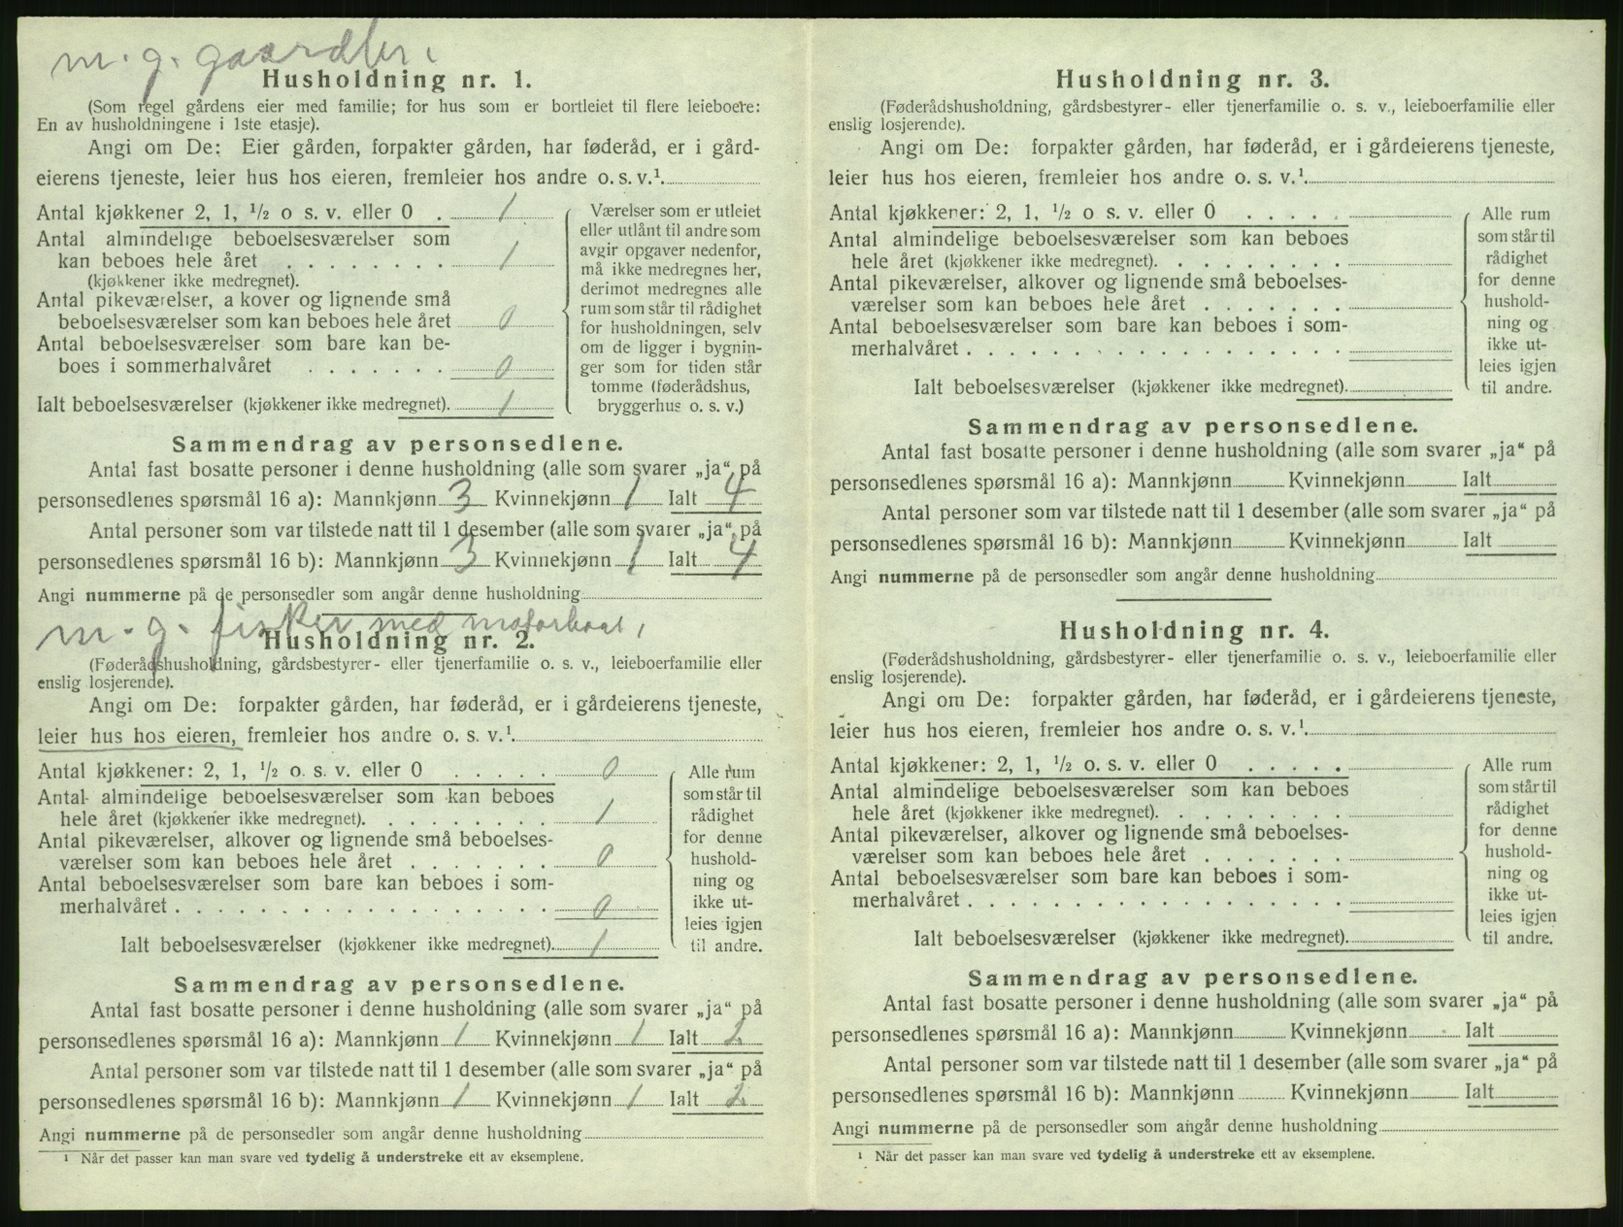 m. g. gaardbr.
Husholdning nr. 1.
(Som regel gårdens eier med familie; for hus som er bortleiet til flere leieboere:
En av husholdningene i 1ste etasje).
Angi om De: Eier gården, forpakter gården, har føderåd, er i gård-
eierens tjeneste, leier hus hos eieren, fremleier hos andre o. s. v.¹
Antal kjøkkener 2, 1, ½ o s. v. eller 0 . 1
Antal almindelige beboelsesværelser som
kan beboes hele året . . . . . . . . 1
(kjøkkener ikke medregnet).
Antal pikeværelser, a kover og lignende små
beboelsesværelser som kan beboes hele året 0
Antal beboelsesværelser som bare kan be-
boes i sommerhalvåret . . . . . . . 0
Ialt beboelsesværelser (kjøkkener ikke medregnet). 1
Værelser som er utleiet
eller utlånt til andre som
avgir opgaver nedenfor,
må ikke medregnes her,
derimot medregnes alle
rum som står til rådighet
for husholdningen, selv
om de ligger i bygnin-
ger som for tiden står
tomme (føderådshus,
bryggerhus o. s. v.)
Sammendrag av personsedlene.
Antal fast bosatte personer i denne husholdning (alle som svarer „ja“ på
personsedlenes spørsmål 16 a): Mannkjønn 3 Kvinnekjønn 1 Ialt 4
Antal personer som var tilstede natt til 1 desember (alle som svarer „ja“ på
personsedlenes spørsmål 16 b): Mannkjønn 3 Kvinnekjønn 1 Ialt 4
Angi nummerne på de personsedler som angår denne husholdning
m. g. fisker med motorbaat,
Husholdning nr. 2.
(Føderådshusholdning, gårdsbestyrer- eller tjenerfamilie o. s. v., leieboerfamilie eller
enslig losjerende).
Angi om De: forpakter gården, har føderåd, er i gårdeierens tjeneste,
leier hus hos eieren, fremleier hos andre o. s. v.¹
Antal kjøkkener: 2, 1, ½ o. s. v. eller 0 . . . . . 0
Antal almindelige beboelsesværelser som kan beboes
hele året (kjøkkener ikke medregnet). . . . . . . . 1
Antal pikeværelser, alkover og lignende små beboelses-
værelser som kan beboes hele året . . . . . . . 0
Antal beboelsesværelser som bare kan beboes i som-
merhalvåret . . . . . . . . . . . . . . . . . . 0
Ialt beboelsesværelser (kjøkkener ikke medregnet). 1
Alle rum
som står til
rådighet
for denne
hushold-
ning og
ikke ut-
leies igjen
til andre.
Sammendrag av personsedlene.
Antal fast bosatte personer i denne husholdning (alle som svarer „ja“ på
personsedlenes spørsmål 16 a): Mannkjønn 1 Kvinnekjønn 1 Ialt 2
Antal personer som var tilstede natt til 1 desember (alle som svarer „ja“ på
personsedlenes spørsmål 16 b): Mannkjønn 1 Kvinnekjønn 1 Ialt 2
Angi nummerne på de personsedler som angår denne husholdning
¹ Når det passer kan man svare ved tydelig å understreke ett av eksemplene.
Husholdning nr. 3.
(Føderådshusholdning, gårdsbestyrer- eller tjenerfamilie o. s. v., leieboerfamilie eller
enslig losjerende).
Angi om De: forpakter gården, har føderåd, er i gårdeierens tjeneste,
leier hus hos eieren, fremleier hos andre o. s. v.¹
Antal kjøkkener: 2, 1, ½ o s. v. eller 0 . . . . .
Antal almindelige beboelsesværelser som kan beboes
hele året (kjøkkener ikke medregnet). . . . . . . .
Antal pikeværelser, alkover og lignende små beboelses-
værelser som kan beboes hele året . . . . . . .
Antal beboelsesværelser som bare kan beboes i som-
merhalvåret . . . . . . . . . . . . . . . . . .
Ialt beboelsesværelser (kjøkkener ikke medregnet).
Alle rum
som står til
rådighet
for denne
hushold-
ning og
ikke ut-
leies igjen
til andre.
Sammendrag av personsedlene.
Antal fast bosatte personer i denne husholdning (alle som svarer „ja“ på
personsedlenes spørsmål 16 a): Mannkjønn Kvinnekjønn Ialt
Antal personer som var tilstede natt til 1 desember (alle som svarer „ja“ på
personsedlenes spørsmål 16 b): Mannkjønn Kvinnekjønn Ialt
Angi nummerne på de personsedler som angår denne husholdning
Husholdning nr. 4.
(Føderådshusholdning, gårdsbestyrer- eller tjenerfamilie o. s. v., leieboerfamilie eller
enslig losjerende).
Angi om De: forpakter gården, har føderåd, er i gårdeierens tjeneste,
leier hus hos eieren, fremleier hos andre o. s. v.¹
Antal kjøkkener: 2, 1, ½ o. s. v. eller 0 . . . . .
Antal almindelige beboelsesværelser som kan beboes
hele året (kjøkkener ikke medregnet). . . . . . . .
Antal pikeværelser, alkover og lignende små beboelses-
værelser som kan beboes hele året . . . . . . .
Antal beboelsesværelser som bare kan beboes i som-
merhalvåret . . . . . . . . . . . . . . . . . .
Ialt beboelsesværelser (kjøkkener ikke medregnet).
Alle rum
som står til
rådighet
for denne
hushold-
ning og
ikke ut-
leies igjen
til andre.
Sammendrag av personsedlene.
Antal fast bosatte personer i denne husholdning (alle som svarer „ja“ på
personsedlenes spørsmål 16 a): Mannkjønn Kvinnekjønn Ialt
Antal personer som var tilstede natt til 1 desember (alle som svarer „ja“ på
personsedlenes spørsmål 16 b): Mannkjønn Kvinnekjønn Ialt
Angi nummerne på de personsedler som angår denne husholdning
¹ Når det passer kan man svare ved tydelig å understreke ett av eksemplene.